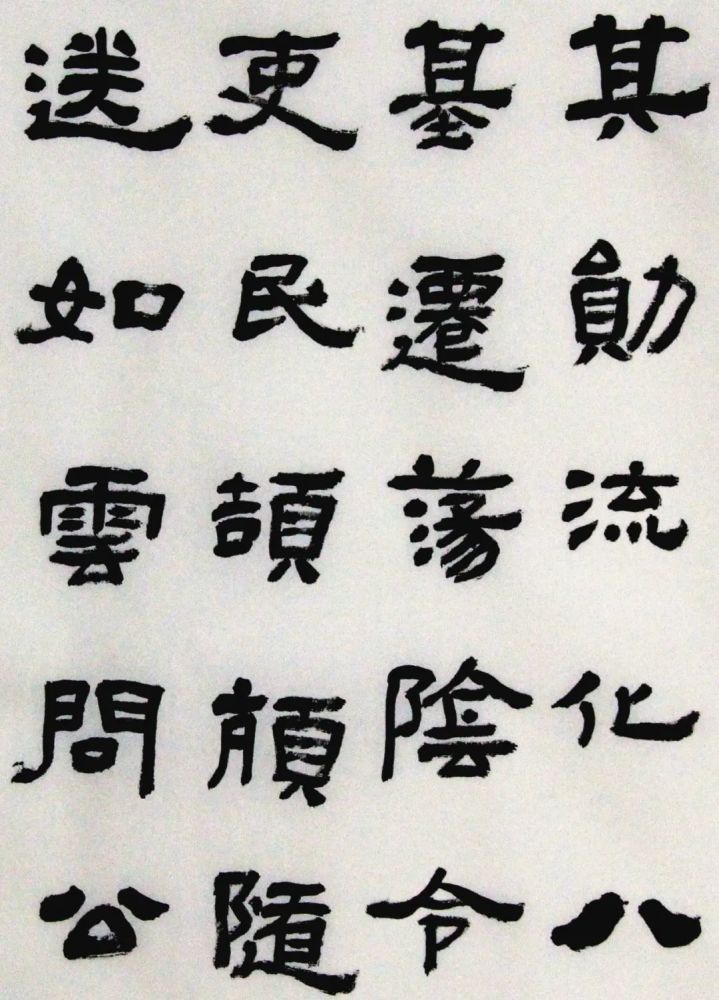 其勛流化八
基遷蕩陰令
吏民頡頏隨
送如雲問公